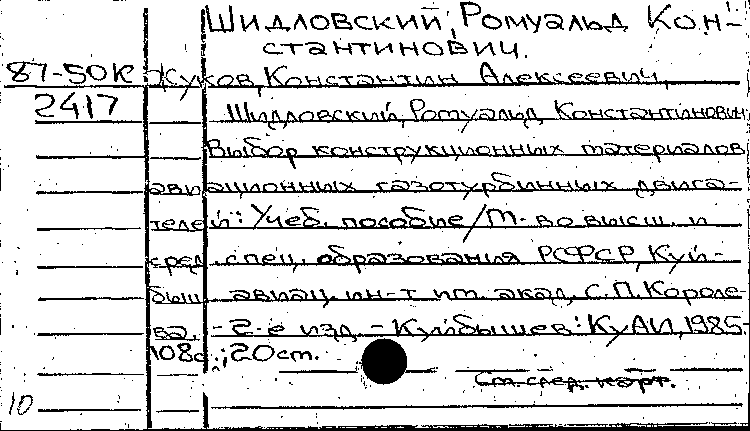 Шидловский, Ромуальд Кон-
стантинович.
87-50К Жуков, Константин Алексеевич,
2417 Шидловский, Ромуальд Константинович
Выбор конструкционных материалов
авиационных газотурбинных двига-
телей: Учеб. пособие/М-во высш. и
сред. спец. образования РСФСР, Куй-
быш. авиац. ин-т им. акад. С.П. Короле-
ва. - 2-е изд. - Куйбышев: КуАИ, 1985-
108с.; 20 ст.
См. след. карт.
10